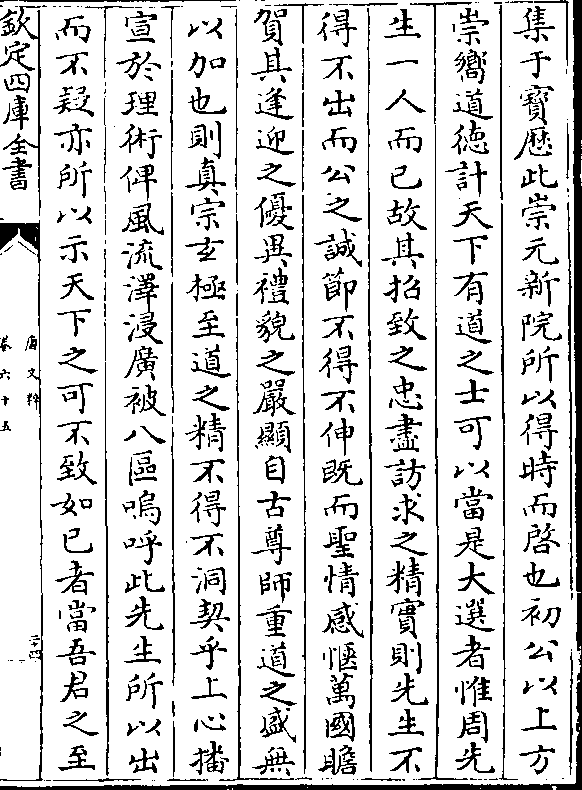 集于寶厯此崇元新院所以得時而啓也初公以上方
崇嚮道徳計天下有道之士可以當是大選者惟周先
生一人而已故其招致之忠盡訪求之精實則先生不
得不出而公之誠節不得不伸既而聖情感愜萬國瞻
賀其逢迎之優異禮貌之嚴顯自古尊師重道之盛無
以加也則真宗玄極至道之精不得不洞契乎上心播
宣於理術俾風流澤浸廣被八區嗚呼此先生所以出
而不疑亦所以示天下之可不致如已者當吾君之至
欽定四庫全書
唐文粹
卷六十五
二十四